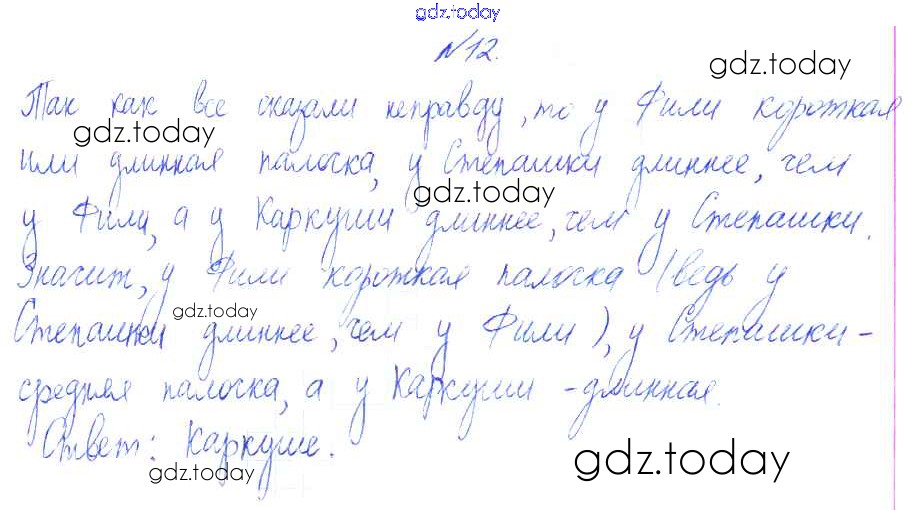 gdz.today
№12.
gdz.today
Так как все сказали неправду, то у Фили короткая
gdz.today
или длинная палочка, у Степашки длиннее, чем
gdz.today
у Фили, а у Каркуши длиннее, чем у Степашки.
Значит, у Фили короткая палочка (ведь у
gdz.today
Степашки длиннее, чем у Фили), у Степашки -
средняя палочка, а у Каркуши - длинная.
Ответ: Каркуше.
gdz.today
gdz.today